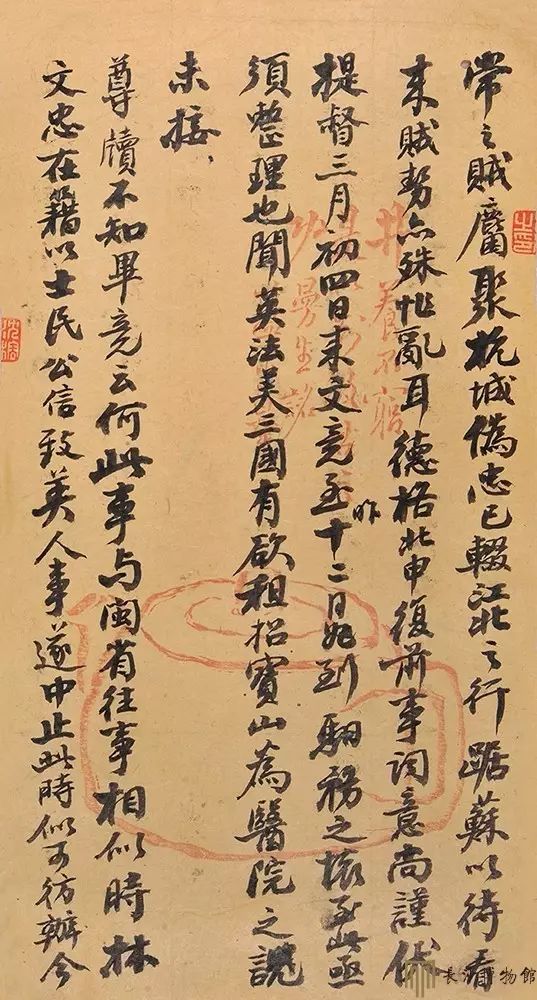 常之賊麕聚杭城僞忠已輟江北之行踞蘇以待看
来賊勢亦殊忙亂耳德格北申復前事詞意尚謹伏
提督三月初四日来文竟至昨十二日始到馹務之壞至此亟
須整理也聞英法美三國有欲租招寳山為醫院之說
未接
尊牘不知畢竟云何此事与閩省往事相似時林
文忠在籍以士民公信致英人事遂中止此時似可仿辦今
井養不窮
曼生銘
長沙博物館